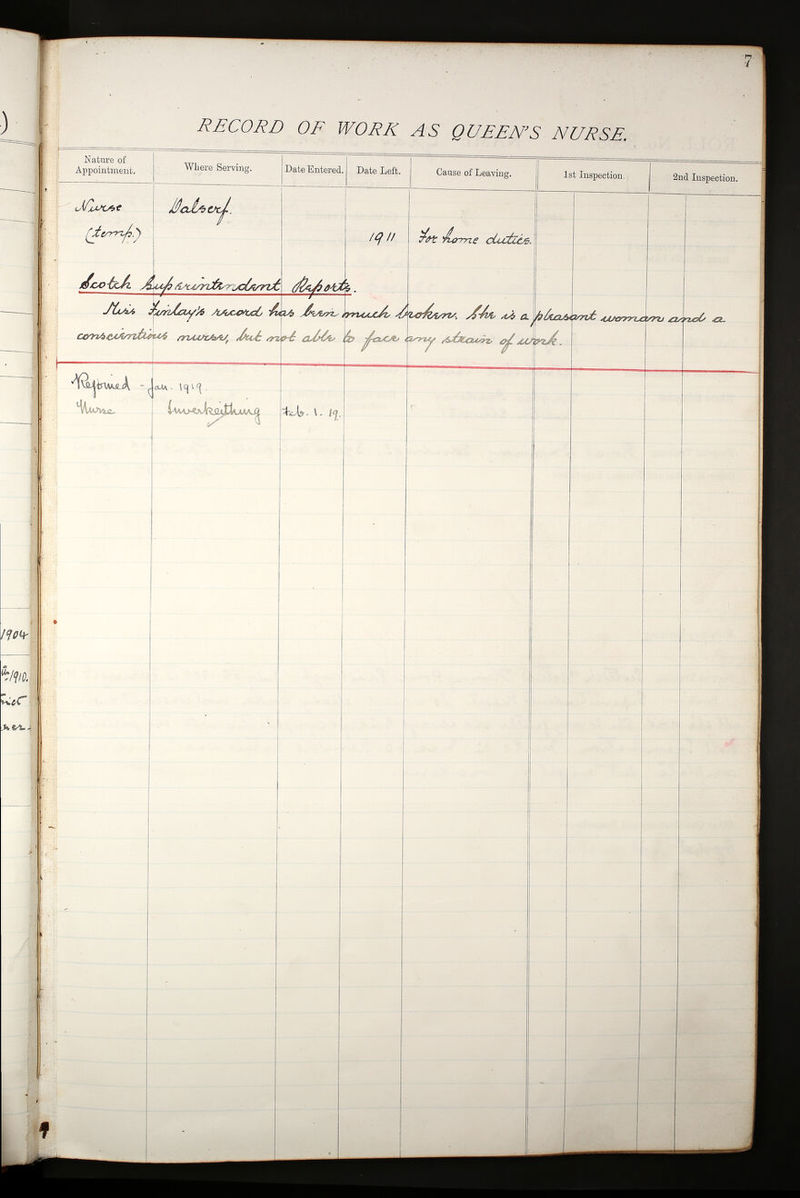 7
RECORD OF WORK AS QUEEN'S NURSE.
Nature of Appointment. Where Serving. Date Entered. Date Left. Cause of Leaving. 1st Inspection. 2nd Inspection.
Nurse Dalserf.
(temp.) 1911 For home duties.
Scotch Superintendent Reports.
Miss Finlay's record has been much broken. She is a pleasant woman and a
conscientious nurse, but not able to face any strain of work.
Rejoined - Jan. 1919.
Nurse Inverkeithing Feb. 1. 19.
1904
1910.